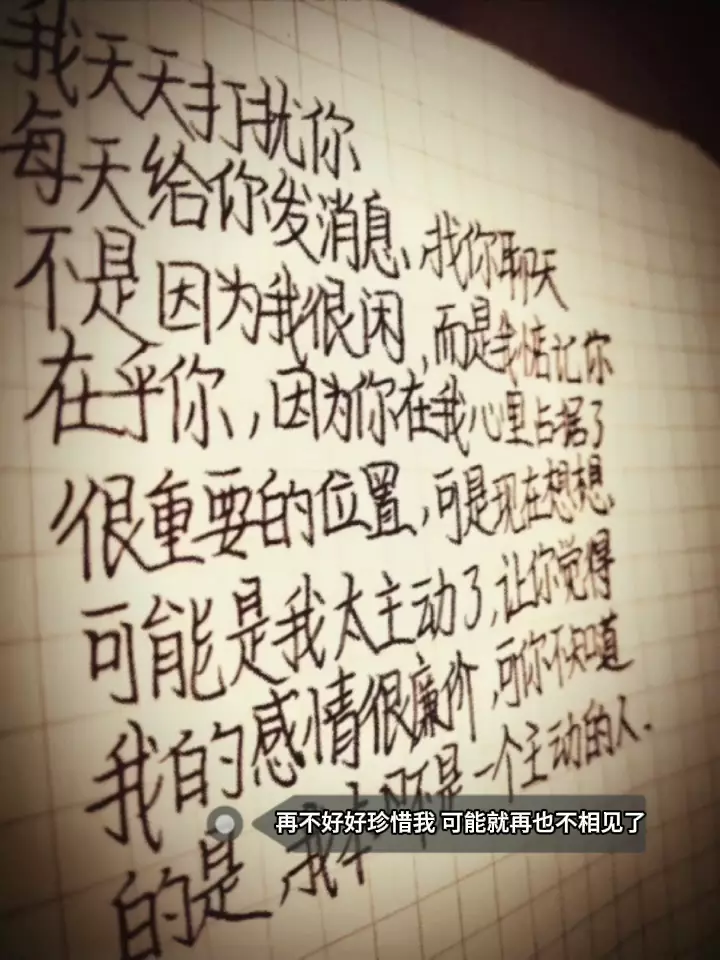 我天天打扰你
每天给你发消息、找你聊天
不是因为我很闲,而是我惦记你
在乎你,因为你在我心里占据了
很重要的位置,可是现在想想,
可能是我太主动了,让你觉得
我的感情很廉价,可你不知道
的是,我本 不是一个主动的人.
再不好好珍惜我 可能就再也不相见了